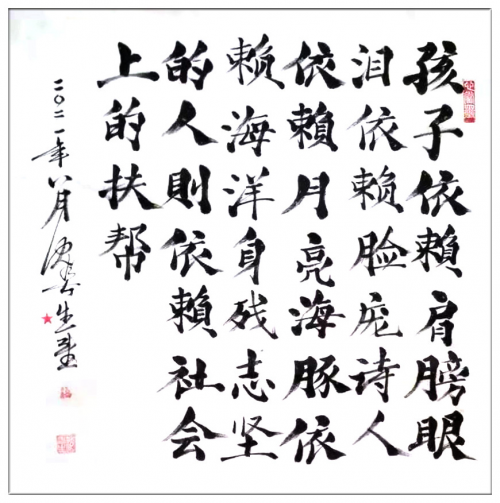 孩子依賴肩膀眼
泪依赖脸庞诗人
依賴月亮海豚依
赖海洋身残志坚
的人則依賴社会
上的扶帮
二〇二一年八月